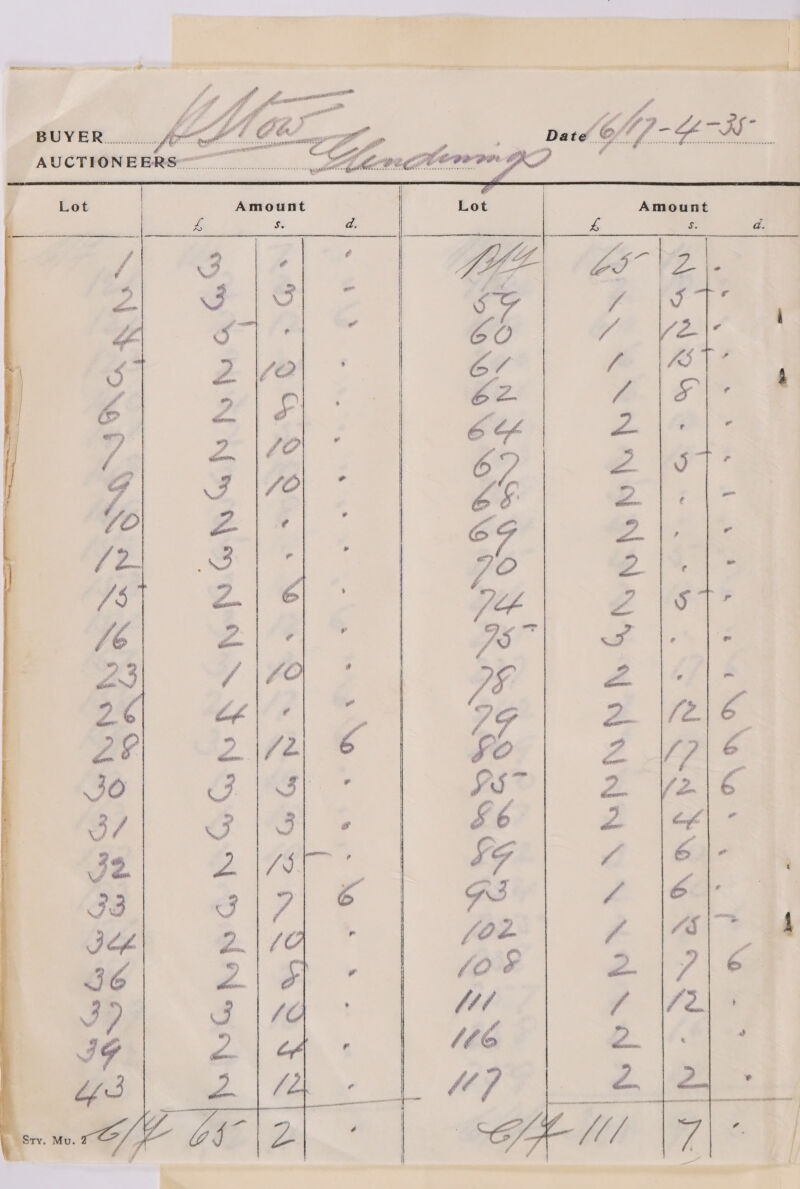 BUYER A Stow Date 16/17-4-35
AUCTIONEERS Glendinings
Lot Amount Lot Amount
£ s. d. £ s. d.
1 3 . . B/F 65 2 .
2 3 3 - 59 1 5 .
4 5 . . 60 1 12 .
5 2 10 . 61 1 15 .
6 2 8 . 62 1 8 .
7 2 10 . 64 2 . .
9 3 10 . 67 2 5 .
10 2 . . 68 2 . -
12 3 . . 69 2 . .
15 2 6 . 70 2 . -
16 2 . . 74 2 5 .
23 1 10 . 75 3 . -
26 4 . . 78 2 . -
28 2 12 6 79 2 12 6
30 3 3 . 80 2 17 6
31 3 3 . 85 2 12 6
32 2 15 . 86 2 4 .
33 3 7 6 89 1 6 .
34 2 10 . 93 1 6 .
36 2 8 . 102 1 15 -
37 3 10 . 108 2 7 6
39 2 4 . 111 1 12 .
43 2 12 . 116 2 . .
117 2 2 .
STY. MU. 2 C/F 65 2 . C/F 111 7 .